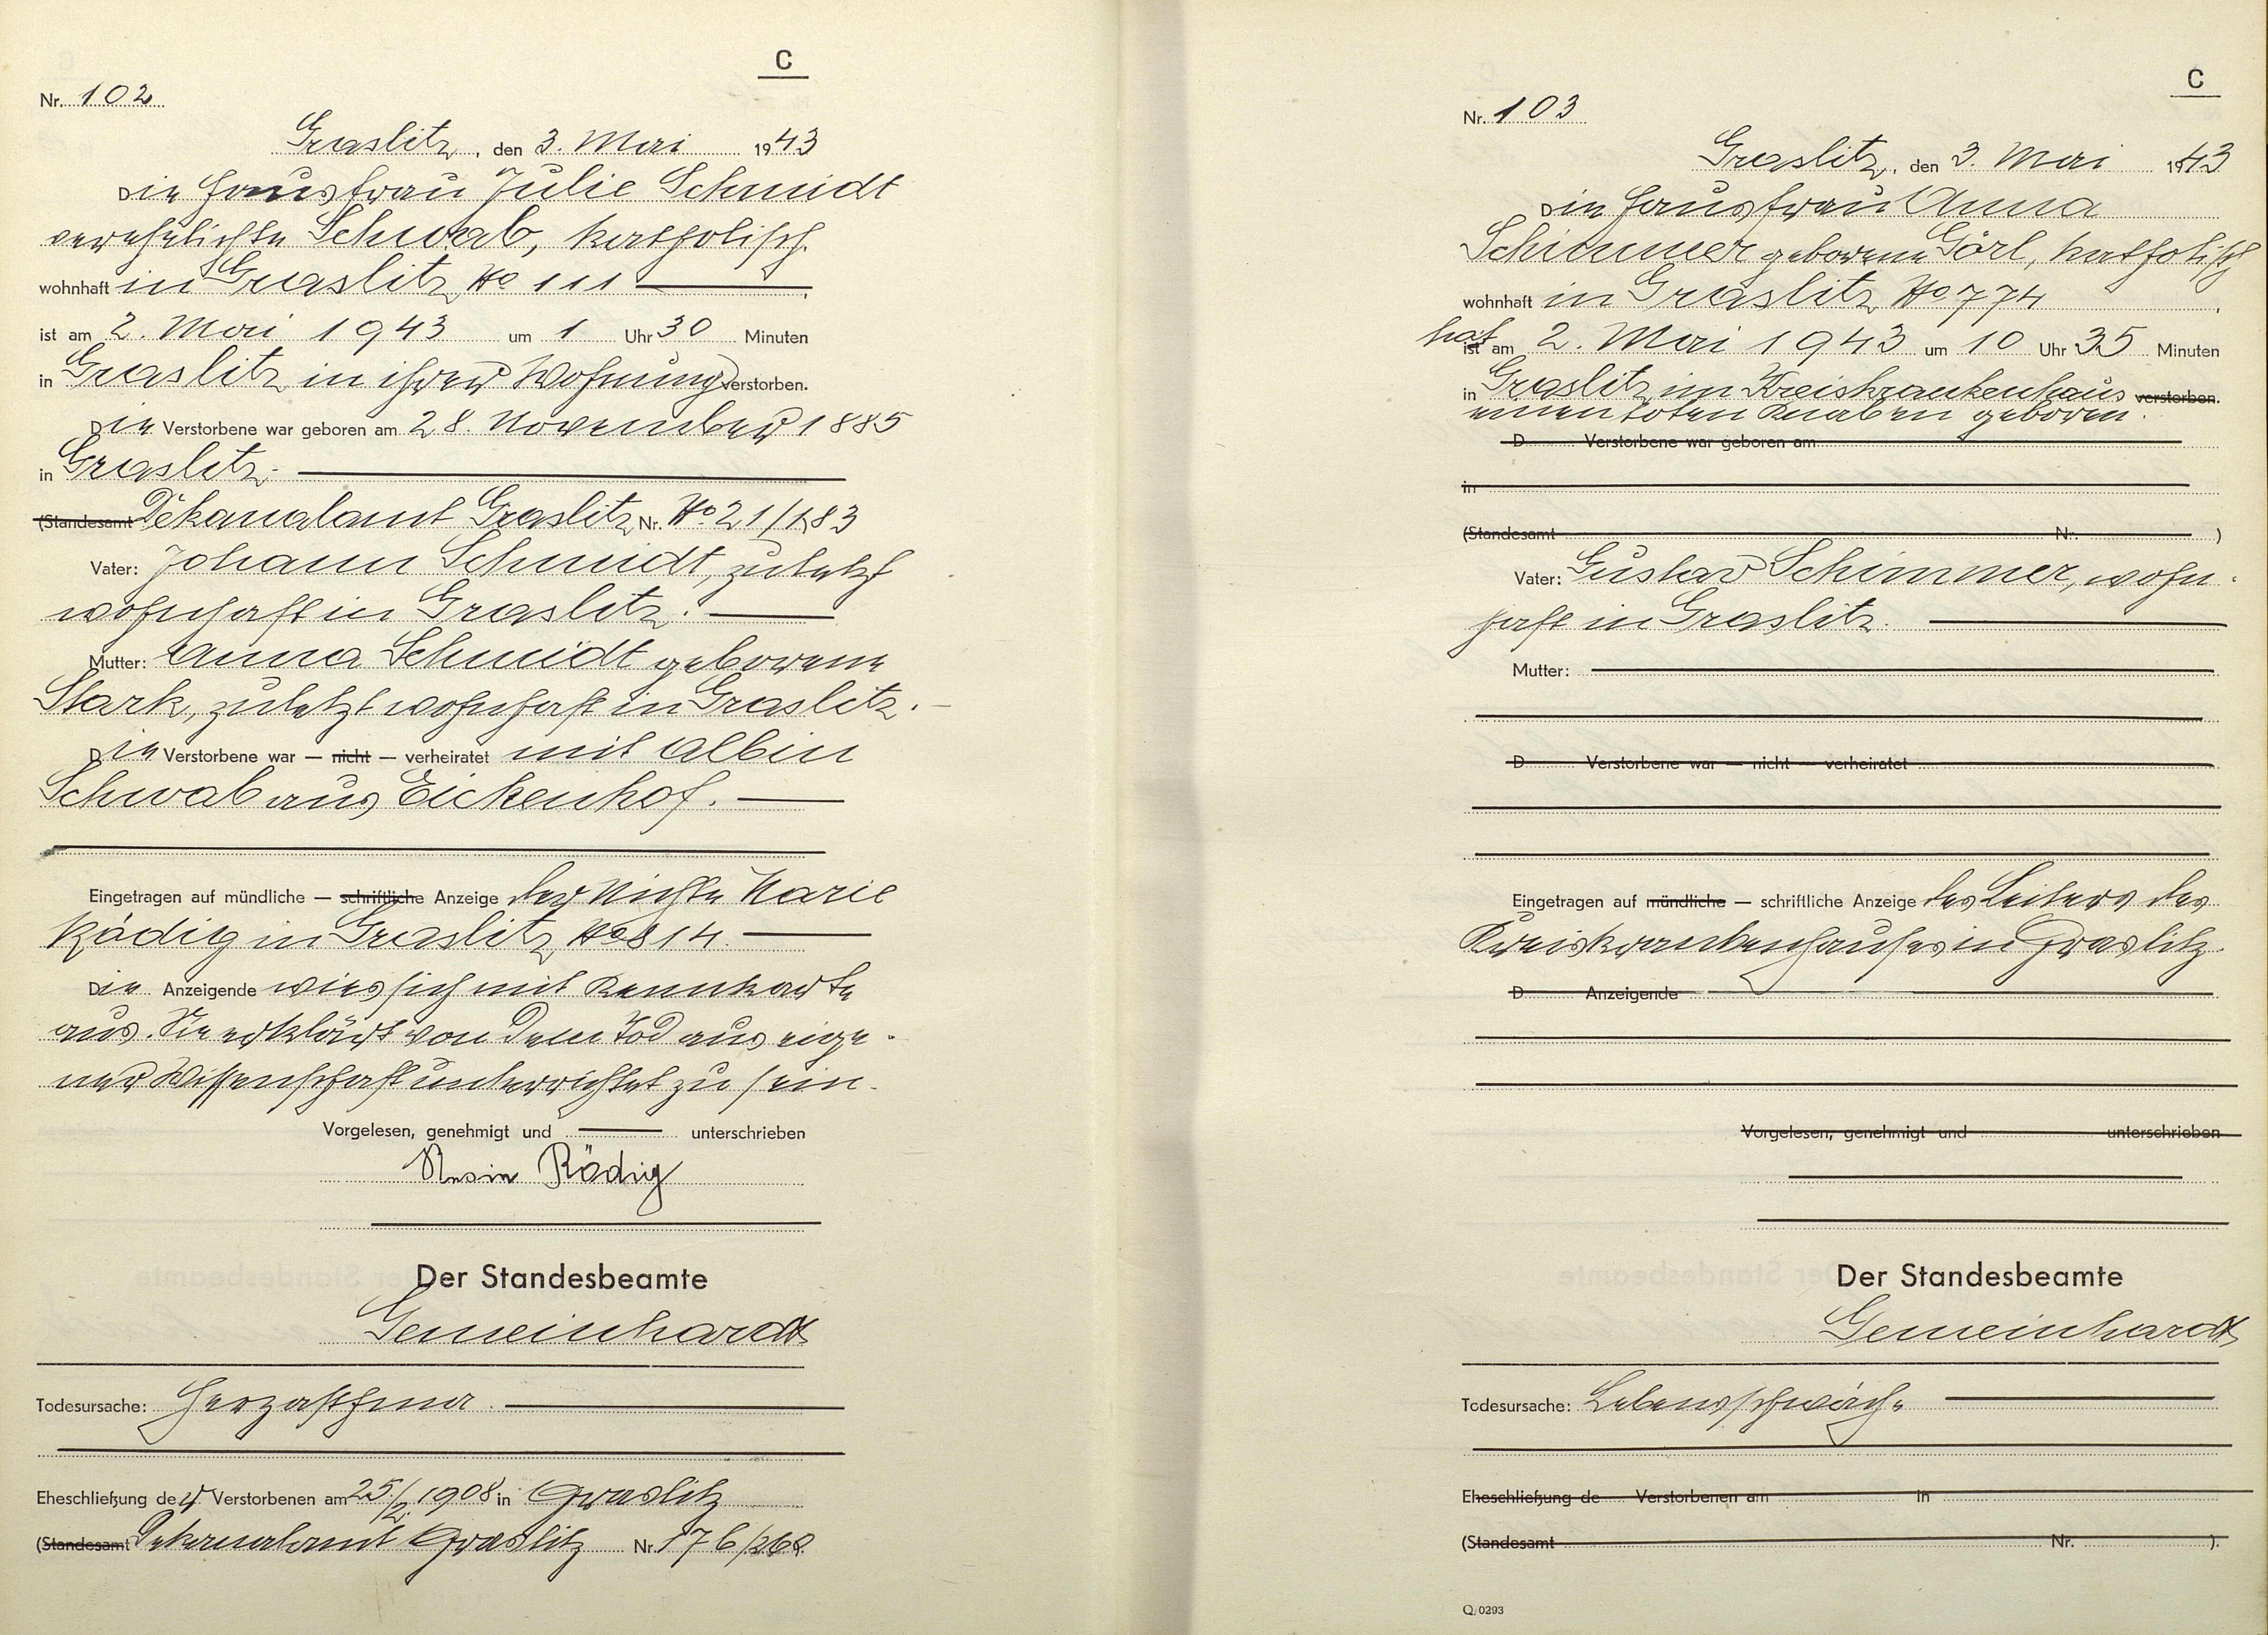 C
Nr. 102
Graslitz, den 3. Mai 1943
Die Hausfrau Julie Schmidt
verehelichte Schwab, katholisch
wohnhaft in Graslitz No 111
ist am 2. Mai 1943 um 1 Uhr 30 Minuten
in Graslitz in ihrer Wohnung verstorben.
Die Verstorbene war geboren am 28. November 1885
in Graslitz.
(Standesamt Dekanalamt Graslitz Nr. No 21/183
Vater: Johann Schmidt, zuletzt
wohnhaft in Graslitz.
Mutter: Anna Schmidt geborene
Stark, zuletzt wohnhaft in Graslitz.
Die Verstorbene war — nicht — verheiratet mit Albin
Schwab aus Eickenhof.
Eingetragen auf mündliche — schriftliche Anzeige der Nichte Marie
Rödig in Graslitz No 814.
Die Anzeigende wies sich mit Kennkarte
aus. Sie erklärt von dem Tod aus eige-
ner Wissenschaft unterrichtet zu sein.
Vorgelesen, genehmigt und unterschrieben
Marie Rödig
Der Standesbeamte
Gemeinhardt
Todesursache: Herzasthma.
Eheschließung der Verstorbenen am 25/2. 1908 in Graslitz
(Standesamt Dekanalamt Graslitz Nr. 176/
C
Nr. 103
Graslitz, den 3. Mai 1943
Die Hausfrau Anna
Schimmer geborene Görl, katholisch
wohnhaft in Graslitz No 774,
hat
ist am 2. Mai 1943 um 10 Uhr 35 Minuten
in Graslitz im Kreiskrankenhaus verstorben.
einen toten Knaben geboren.
D Verstorbene war geboren am
in
(Standesamt Nr. )
Vater: Gustav Schimmer, wohn-
haft in Graslitz.
Mutter:
D Verstorbene war — nicht — verheiratet
Eingetragen auf mündliche — schriftliche Anzeige des Leiters des
Kreiskrankenhauses in Graslitz.
D Anzeigende
Vorgelesen, genehmigt und unterschrieben
Der Standesbeamte
Gemeinhardt
Todesursache: Lebensschwäche
Eheschließung de Verstorbenen am in
(Standesamt Nr. ).
Q/0293